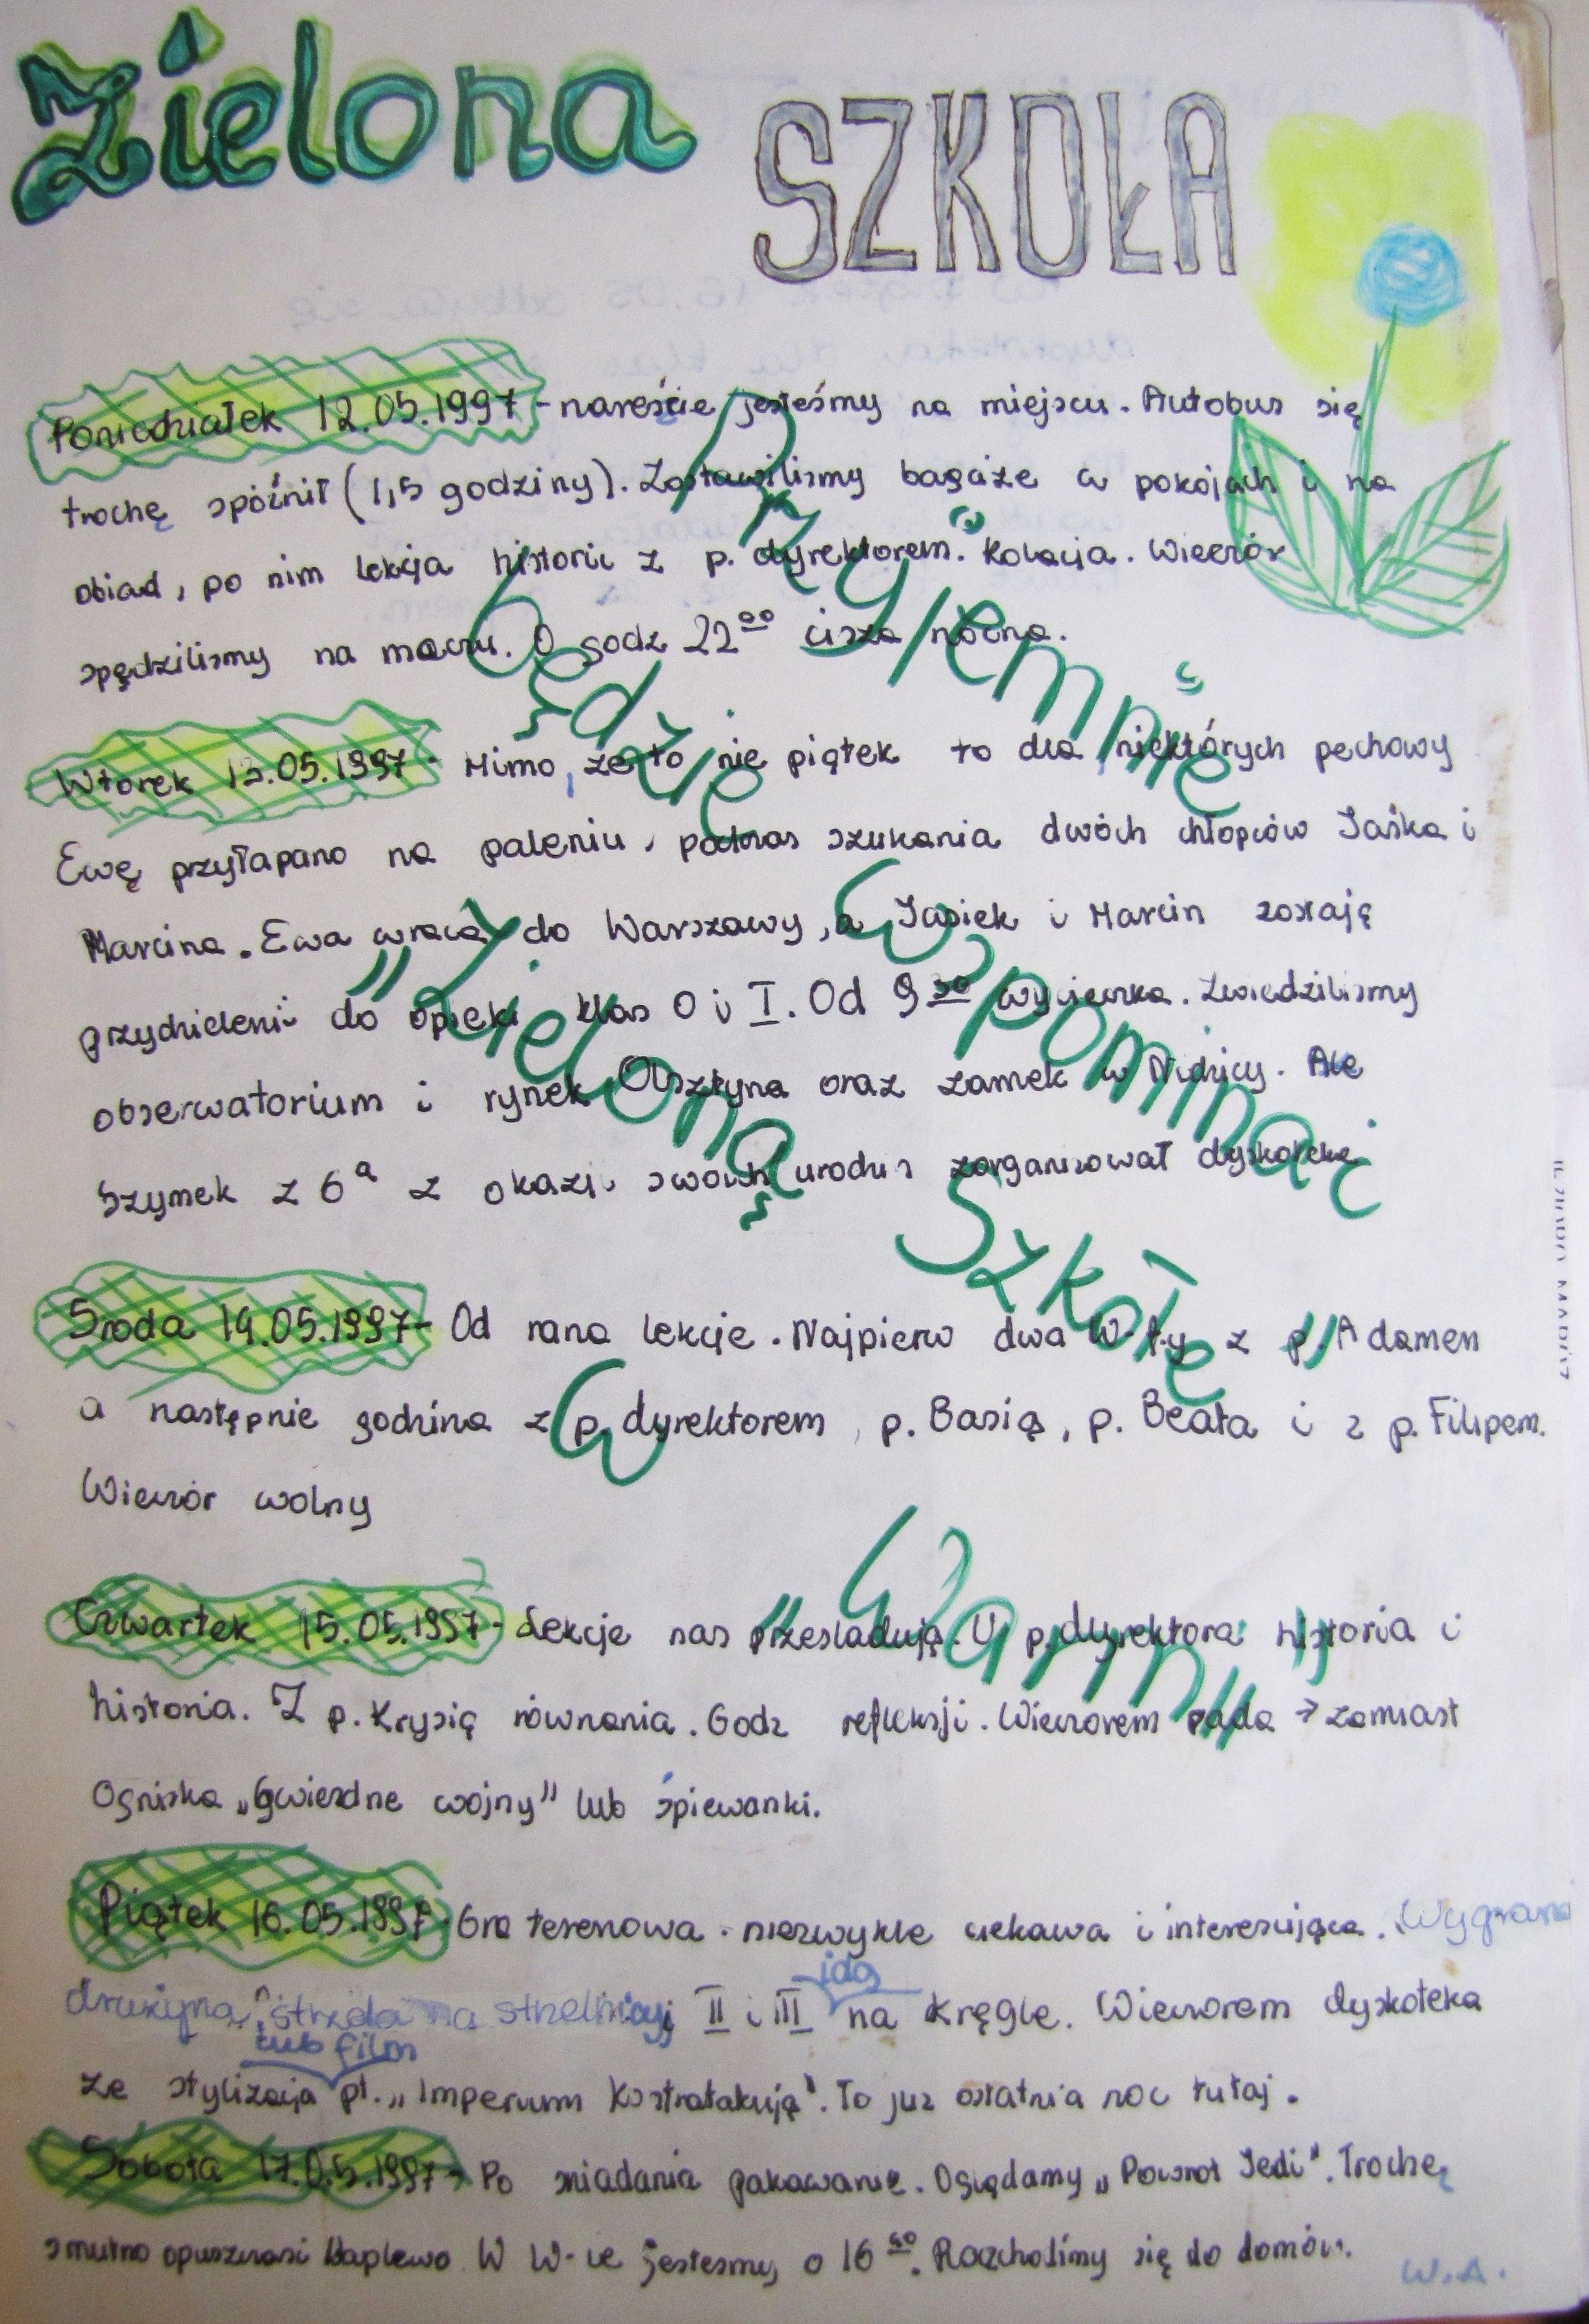 Zielona SZKOŁA
Poniedziałek 12.05.1997 - nareście jesteśmy na miejscu. Autobus się
trochę spóźnił (1,5 godziny). Zostawilismy bagaże w pokojach i na
obiad, po nim lekcja historii z p. dyrektorem. Kolacja. Wieczór
spędzilismy na meczu. O godz 22⁰⁰ cisza nocna.
Wtorek 13.05.1997 - Mimo, że to nie piątek to dla niektórych pechowy
Ewę przyłapano na paleniu, podczas szukania dwóch chłopców Jaśka i
Marcina. Ewa wraca do Warszawy, a Jasiek i Marcin zostają
przydzieleni do opieki klas 0 i I. Od 9³⁰ wycieczka. Zwiedzilismy
obserwatorium i rynek Olsztyna oraz zamek w Nidzicy. Ale
Szymek z 6ᵃ z okazji swoich urodzin zorganizował dyskotekę
Sroda 14.05.1997 - Od rana lekcje. Najpierw dwa W-f-y z p. Adamem
a następnie godzina z p. dyrektorem, p. Basią, p. Beatą i z p. Filipem.
Wieczór wolny
Czwartek 15.05.1997 - Lekcje nas przesladują. U p. dyrektora historia i
historia. Z p. Krysią równania. Godz refleksji. Wieczorem pada → zamiast
Ogniska „Gwiezdne wojny" lub śpiewanki.
Piątek 16.05.1997 - Gra terenowa - niezwykle ciekawa i interesująca. Wygrana
drużyna strzela na strzelnicy, II i III idą na Kręgle. Wieczorem dyskoteka
lub film
ze stylizacja pt. „Imperium Kontratakują". To juz ostatnia noc tutaj.
Sobota 17.05.1997 - Po sniadania pakawanie. Oglądamy „Powrot Jedi". Trochę
smutno opuszczasi Waplewo. W W-ie jestesmy o 16. Rozchodimy się do domów.
W.A.
Przyjemnie
będzie
Wspominać
„Zieloną
Szkołę"
w
„Waplewie"